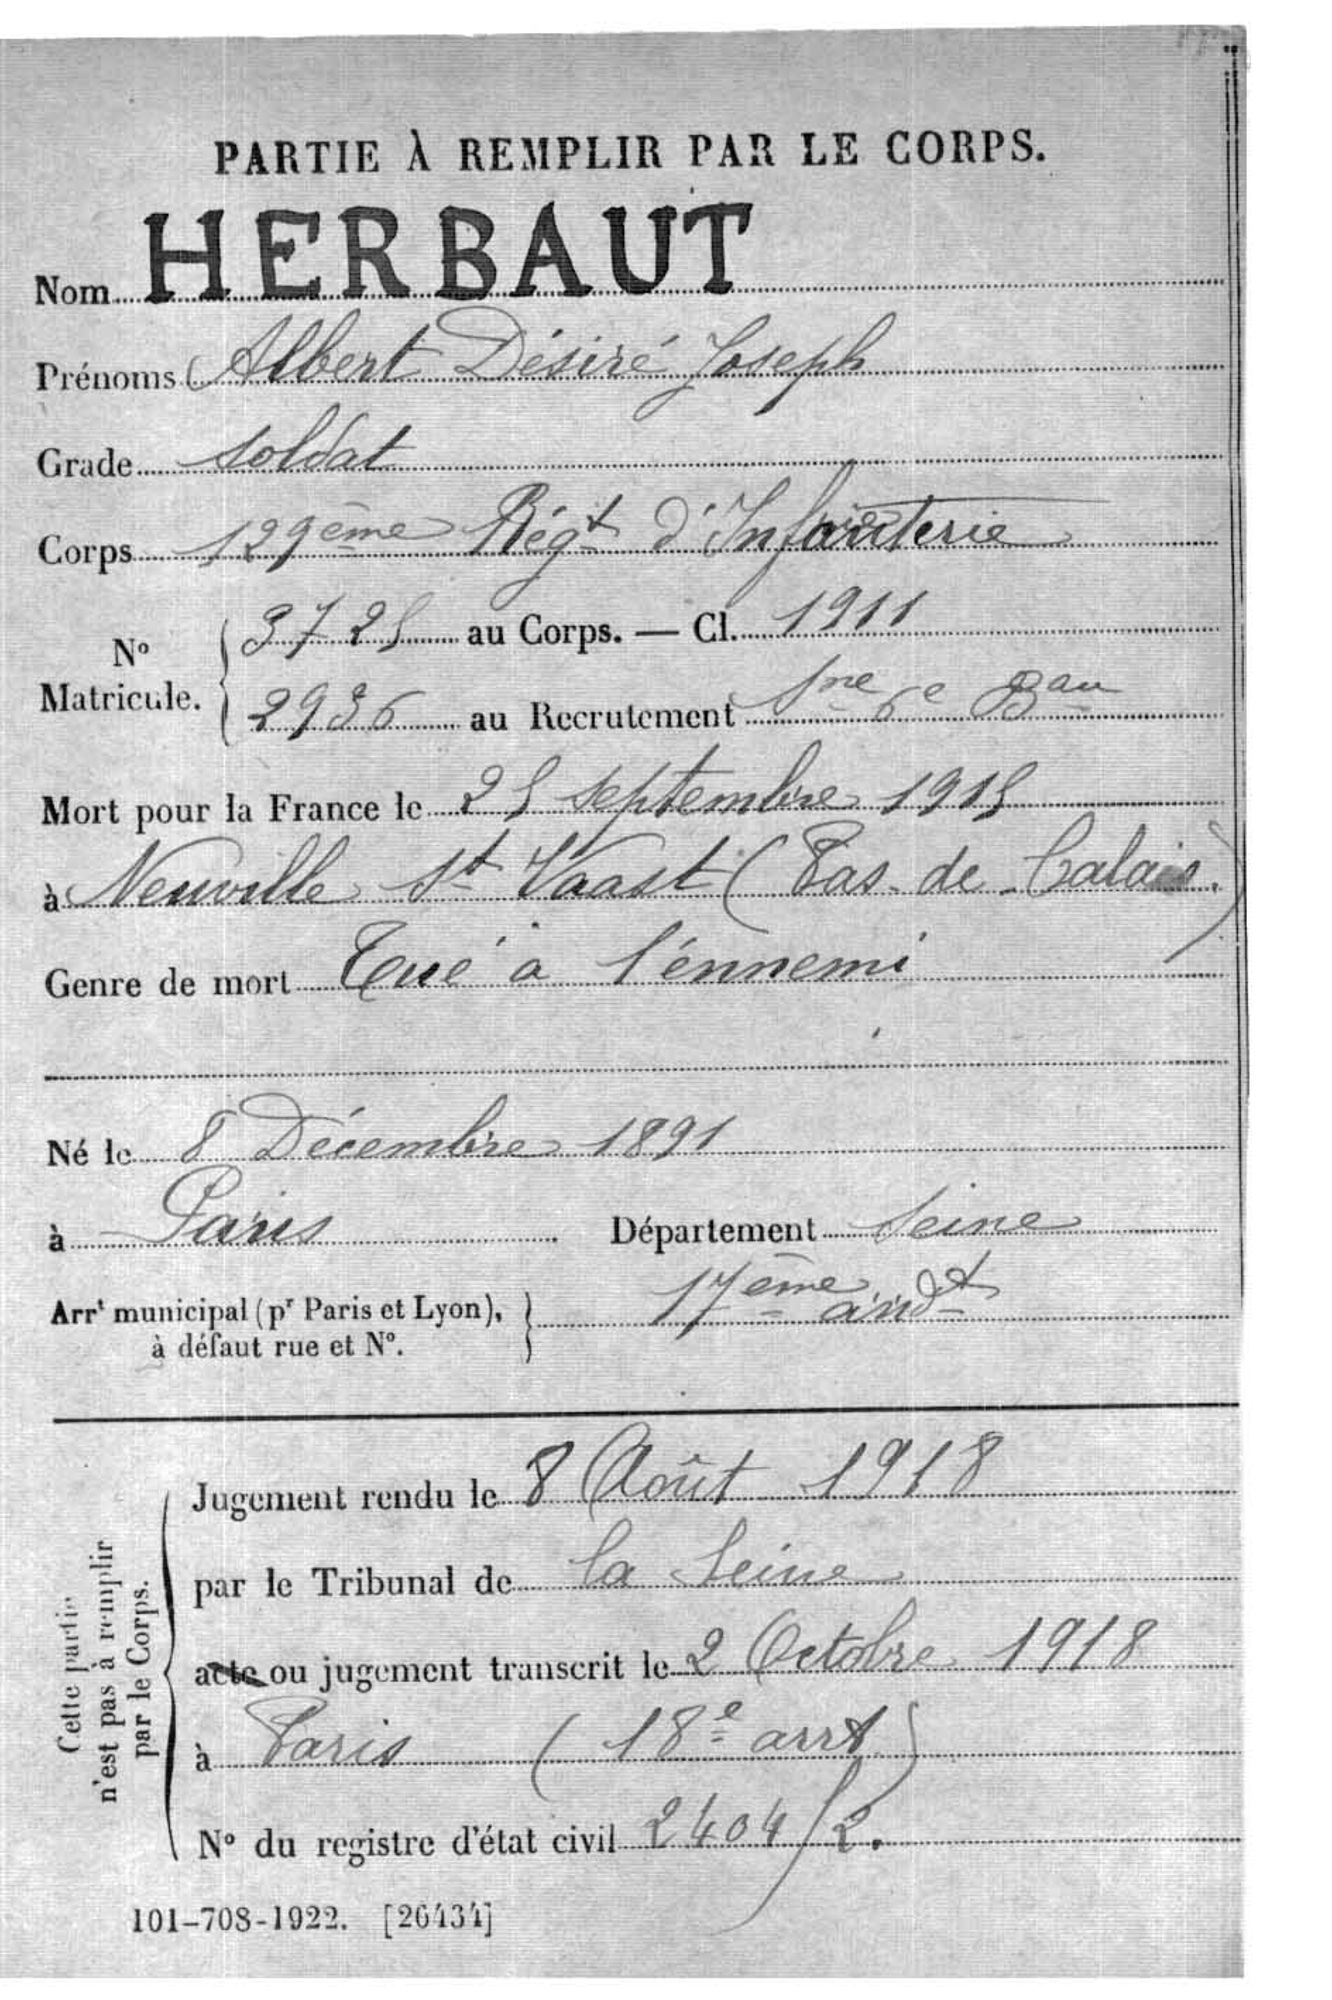 PARTIE À REMPLIR PAR LE CORPS.
Nom HERBAUT
Prénoms Albert Désiré Joseph
Grade Soldat
Corps 129ème Régt d'Infanterie
No Matricule. 3725 au Corps. — Cl. 1911
2936 au Recrutement Sne 6e Bau
Mort pour la France le 25 Septembre 1915
à Neuville St Vaast (Pas-de-Calais)
Genre de mort Tué à l'énnemi
Né le 8 Décembre 1891
à Paris Département Seine
Arrt municipal (pr Paris et Lyon), 17ème
à défaut rue et No.
Cette partie
n'est pas à remplir
par le Corps.
Jugement rendu le 8 Août 1918
par le Tribunal de la Seine
acte ou jugement transcrit le 2 Octobre 1918
à Paris (18e arrt)
No du registre d'état civil 2404/2.
101-708-1922. [26434]